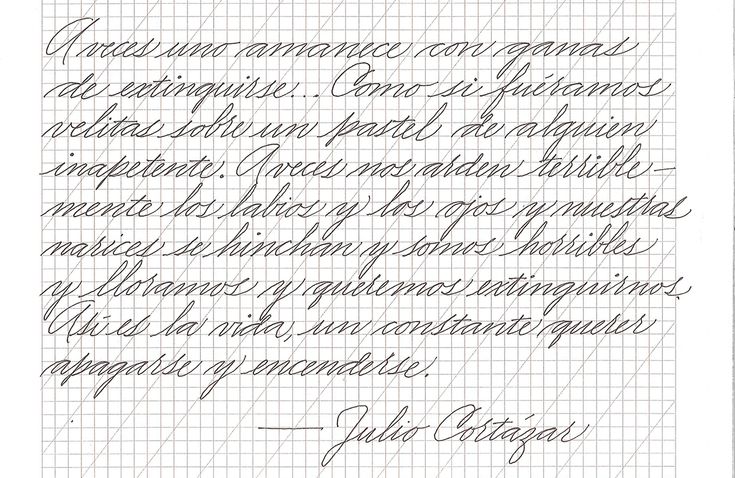 A veces uno amanece con ganas
de extinguirse... Como si fuéramos
velitas sobre un pastel de alguien
inapetente. A veces nos arden terrible-
mente los labios y los ojos y nuestras
narices se hinchan y somos horribles
y lloramos y queremos extinguirnos.
Así es la vida, un constante querer
apagarse y encenderse.
— Julio Cortázar